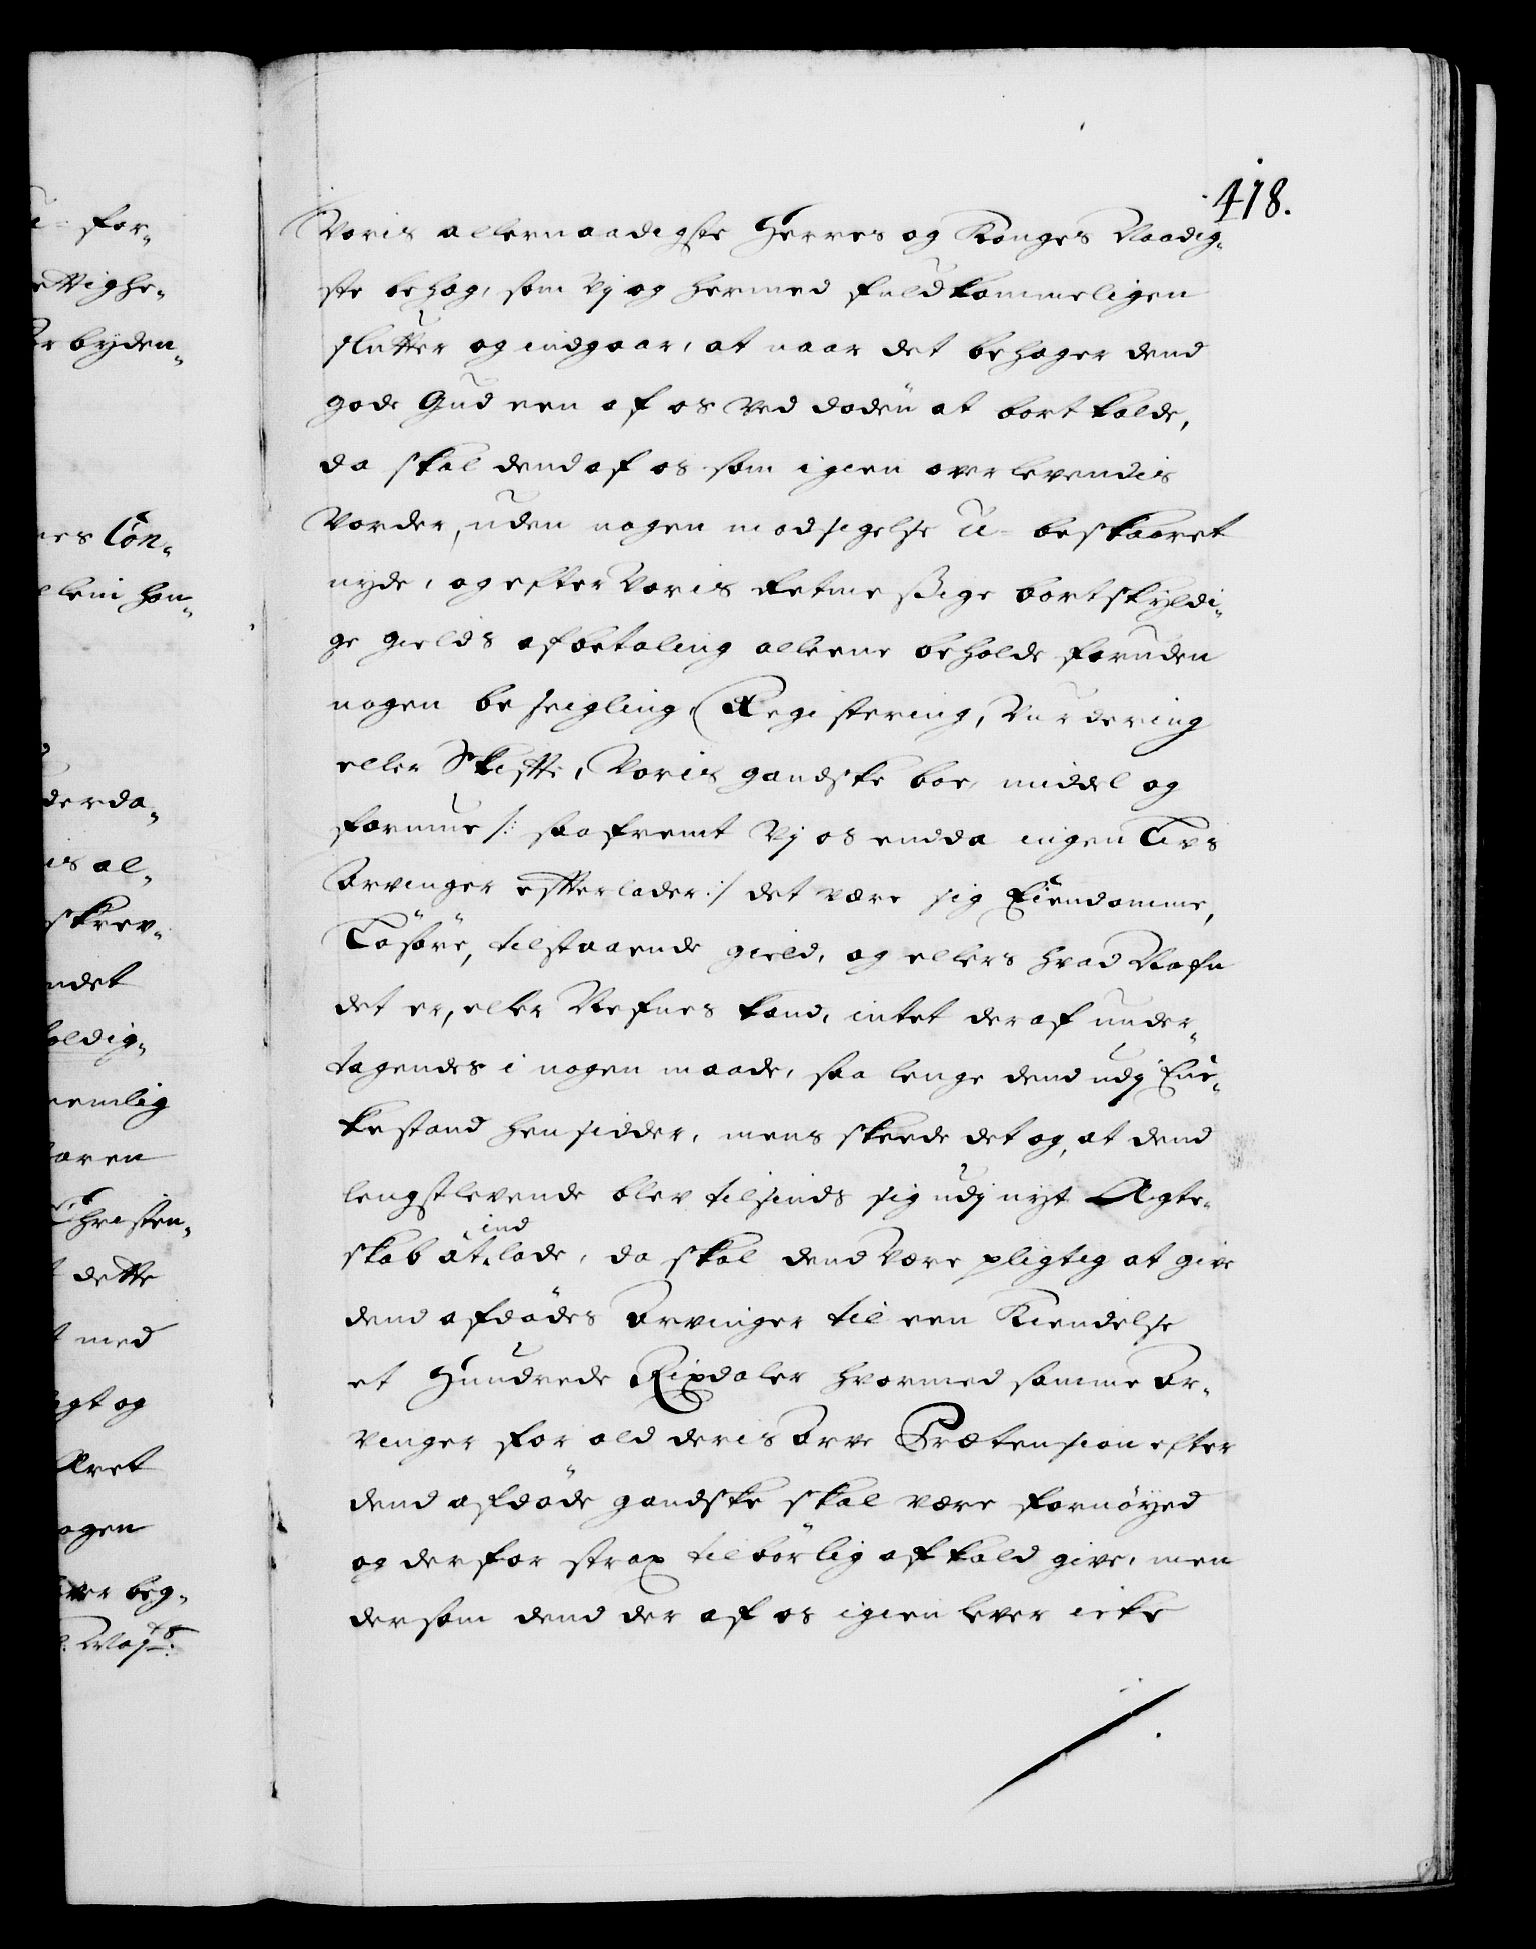 418.
Voris allernaadigste Herres og Konges Naadig-
ste behag, som Vj og hermed fuldkommeligen
slutter og indgaar, at naar det behager dend
gode Gud een af os ved døden at bortkalde,
da skal dend af os som igien overlevendis
Vorder, uden nogen modsigelse u-beskaaret
nyde, og efter Voris Retmessige bortskyldi-
ge gields afbetaling alleene beholde foruden
nogen beseigling, Registering, Vurdering
eller Skifte, Voris gandske boe, middel og
formue /: saafremt Vj os endda ingen Lifs
Arvinger efterlader :/ det være sig Eiendomme,
Løsøre, tilstaaende gield, og ellers hvad Nafn
det er, eller Nefnes kand, intet deraf under-
tagendes i nogen maade, saa lenge dend udj En-
kestand hensidder, mens skeede det og, at dend
lengstlevende blev tilsinds sig udj nyt Ægte-
skab at indlade, da skal dend være pligtig at give
dend afdødes Arvinger til een Kiendelse
et Hundrede Rixdaler hvormed samme Ar-
vinger for ald deris Arve Prætension efter
dend afdøde gandske skal være fornøyed
og derfor strax tilbørlig afkald give, men
dersom dend der af os igien lever icke
u-for-
ettighe-
orbyden-
nes Con-
derda-
is al-
skrev-
ndet
oldig-
nemlig
aren
Christen-
t dette
t med
gt og
Aret
ogen
ver beg-
l. Maj:ts